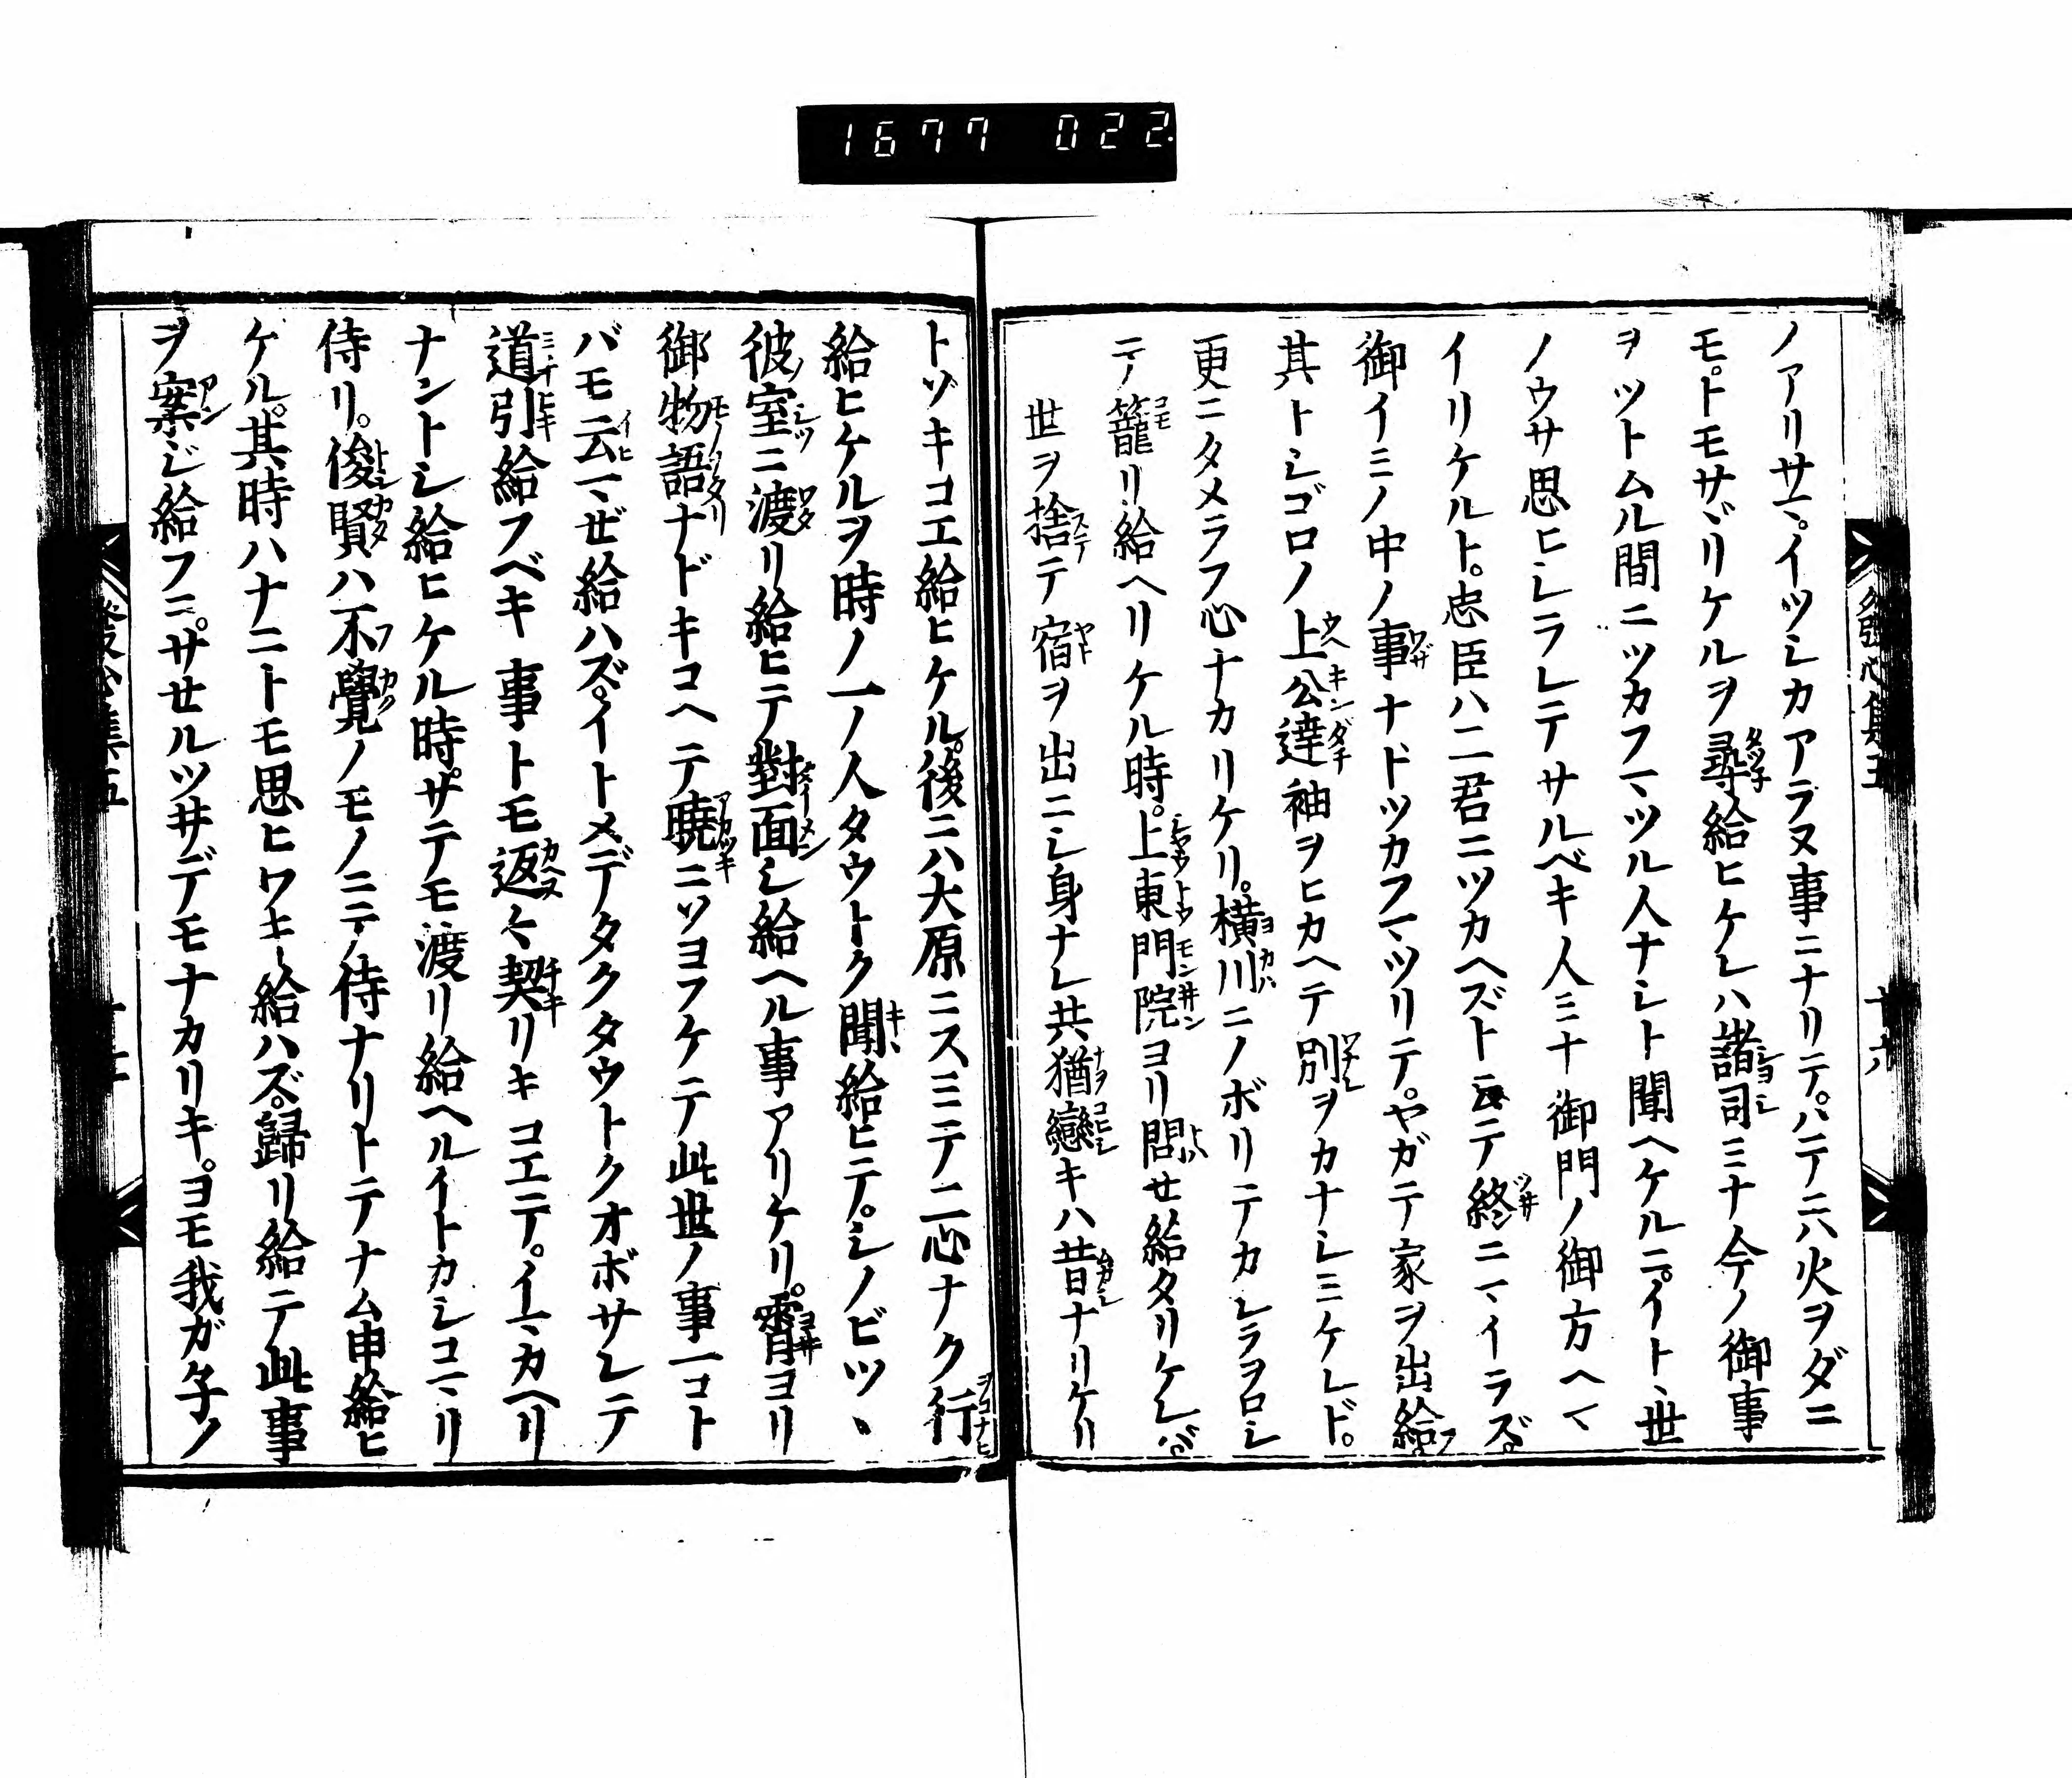 1677 022
ノアリサマ。イツシカアラヌ事ニナリテ。ハテニハ火ヲダニ
モ。トモサヾリケルヲ尋給ヒケレハ諸司ミナ今ノ御事
ヲツトムル間ニツカフマツル人ナシト聞ヘケルニ。イトヽ世
ノウサ思ヒシラレテサルベキ人ミナ御門ノ御方ヘマ
イリケルト。忠臣ハ二君ニツカヘズト云テ終ニマイラズ。
御イミノ中ノ事ナドツカフマツリテ。ヤガテ家ヲ出給フ
其トシゴロノ上公達袖ヲヒカヘテ別ヲカナシミケレド。
更ニタメラフ心ナカリケリ。横川ニノボリテカシラヲロシ
テ籠リ給ヘリケル時。上東門院ヨリ問セ給タリケレバ。
世ヲ捨テ宿ヲ出ニシ身ナレ共猶戀キハ昔ナリケリ
トゾキコエ給ヒケル。後ニハ大原ニスミテ二心ナク行
給ヒケルヲ時ノ一ノ人タウトク聞給ヒテ。シノビツヽ
彼室ニ渡リ給ヒテ對面シ給ヘル事アリケリ。霄ヨリ
御物語ナドキコヘテ曉ニソヨフケテ此世ノ事一コト
バモ云マゼ給ハズ。イトメデタクタウトクオボサレテ
道引給フベキ事トモ返々契リキコエテ。イマカヘリ
ナントシ給ヒケル時。サテモ渡リ給ヘルイトカシコマリ
侍リ。俊賢ハ不覺ノモノニテ侍ナリトテナム申給ヒ
ケル。其時ハナニトモ思ヒワキ給ハズ。歸リ給テ此事
ヲ案ジ給フニ。サセルツ井デモナカリキ。ヨモ我ガ子ノ
發心集五
廿六